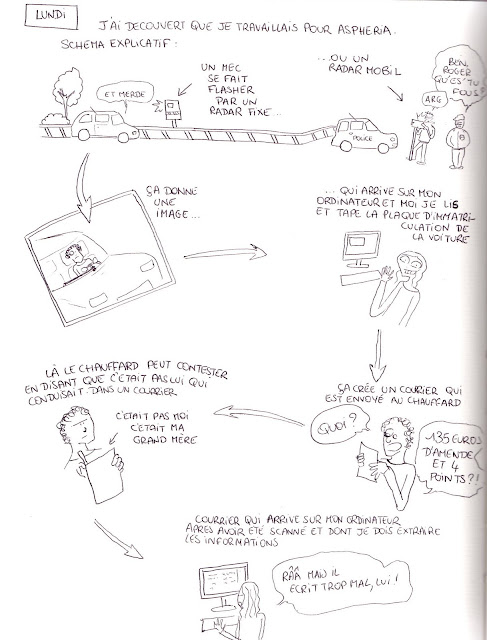 LUNDI
J'AI DECOUVERT QUE JE TRAVAILLAIS POUR ASPHERIA.
SCHEMA EXPLICATIF :
ET MERDE
UN MEC
SE FAIT
FLASHER
PAR UN
RADAR FIXE...
...OU UN
RADAR MOBIL
POLICE
ARG
BEN,
ROGER
QU'ES'TU
FOUS?
ÇA DONNE
UNE
IMAGE...
... QUI ARRIVE SUR MON
ORDINATEUR ET MOI JE LIS
ET TAPE LA PLAQUE D'IMMATRI-
CULATION DE
LA VOITURE
ÇA CRÉE UN COURIER QUI
EST ENVOYÉ AU CHAUFFARD
QUOI?
135 EUROS
D'AMENDE
ET 4
POINTS?!
LÀ LE CHAUFFARD PEUT CONTESTER
EN DISANT QUE C'ÉTAIT PAS LUI QUI
CONDUISAIT DANS UN COURRIER
C'ÉTAIT PAS MOI
C'ÉTAIT MA
GRAND MÈRE
COURRIER QUI ARRIVE SUR MON ORDINATEUR
APRES AVOIR ÉTÉ SCANNÉ ET DONT JE DOIS EXTRAIRE
LES INFORMATIONS
RÂÂ MAIS IL
ECRIT TROP MAL, LUI !